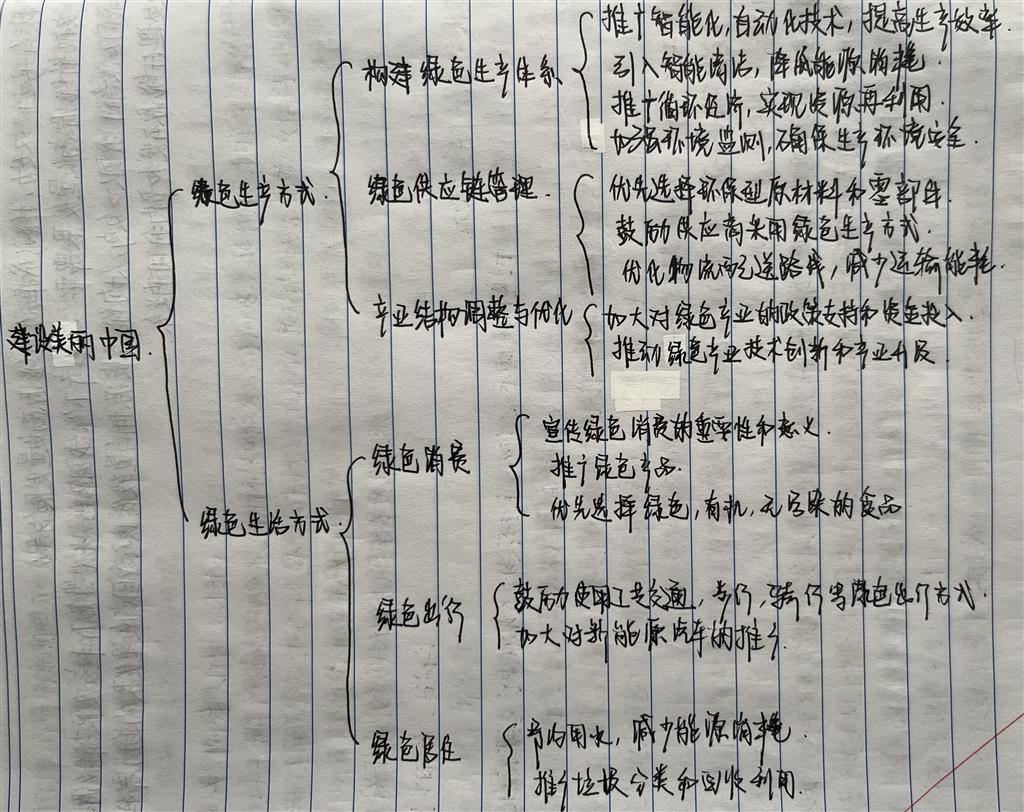 建设美丽中国
绿色生产方式
构建绿色生产体系
推广智能化,自动化技术,提高生产效率.
引入智能清洁,降低能源消耗.
推广循环经济,实现资源再利用.
加强环境监测,确保生产环境安全.
绿色供应链管理.
优先选择环保型原材料和零部件.
鼓励供应商采用绿色生产方式.
优化物流配送路线,减少运输能耗.
产业结构调整与优化
加大对绿色产业的政策支持和资金投入.
推动绿色产业技术创新和产业升级
绿色生活方式
绿色消费
宣传绿色消费的重要性和意义.
推广绿色产品.
优先选择绿色,有机,无污染的食品
绿色出行
鼓励使用公共交通,步行,骑行等绿色出行方式.
加大对新能源汽车的推广.
绿色居住
节约用水,减少能源消耗.
推广垃圾分类和回收利用.